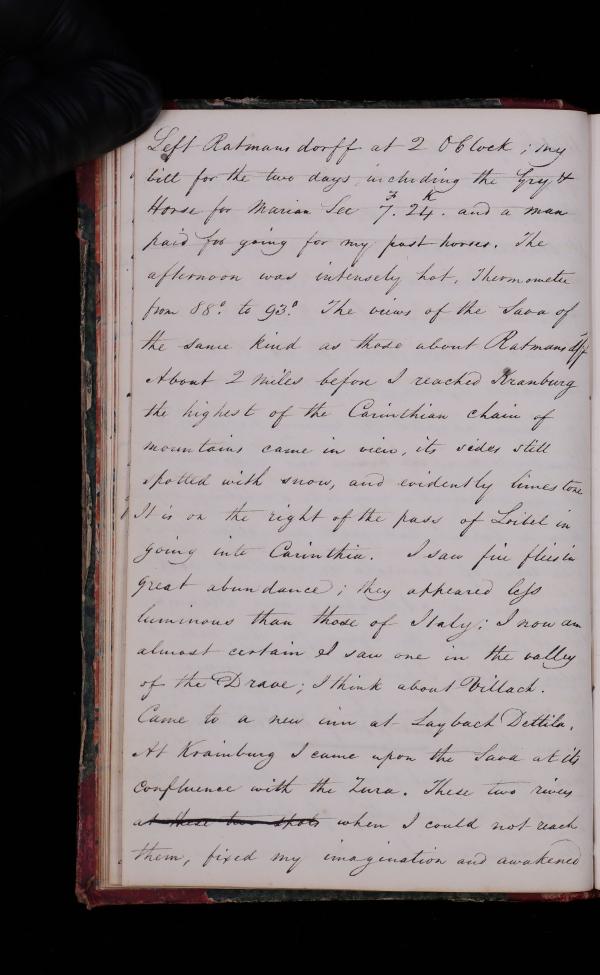 Left Ratmansdorff at 2 OClock; my
bill for the two days including the Grey &
Horse for Marian See 7.F 24.K and a man
paid for going for my post horses. The
afternoon was intensely hot, Thermometer
from 88°. to 93°. The views of the Sava of
the same kind as those about Ratmansdff
About 2 miles before I reached Kranburg
the highest of the Carinthian chain of
mountains came in view, its sides still
spotted with snow, and evidently limestone
It is on the right of the pass of Loibel in
going into Carinthia. I saw fire flies in
great abundance; they appeared less
luminous than those of Italy; I now am
almost certain I saw one in the valley
of the Drave; I think about Villach.
Came to a new inn at Laybach Dettila.
At Krainburg I came upon the Sava at its
confluence with the Zura. These two rivers
at these two spots when I could not reach
them, fixed my imagination and awakened